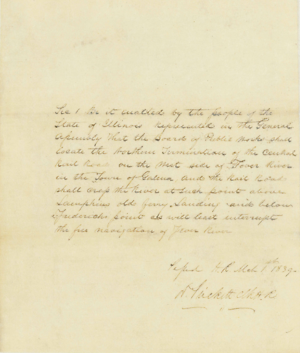 Sec 1 Be it enacted by the people of the
State of Illinois represented in the General
Assembly That the Board of Public Works shall
locate the Northern Termination of the Central
Rail Road on the West side of Fever River
in the Town of Galena and the Rail Road
shall cross the River at such point above
old ferry Landing and below
point as will least interrupt
the free navigation of Fever River
H. R. Mch 1st 1839